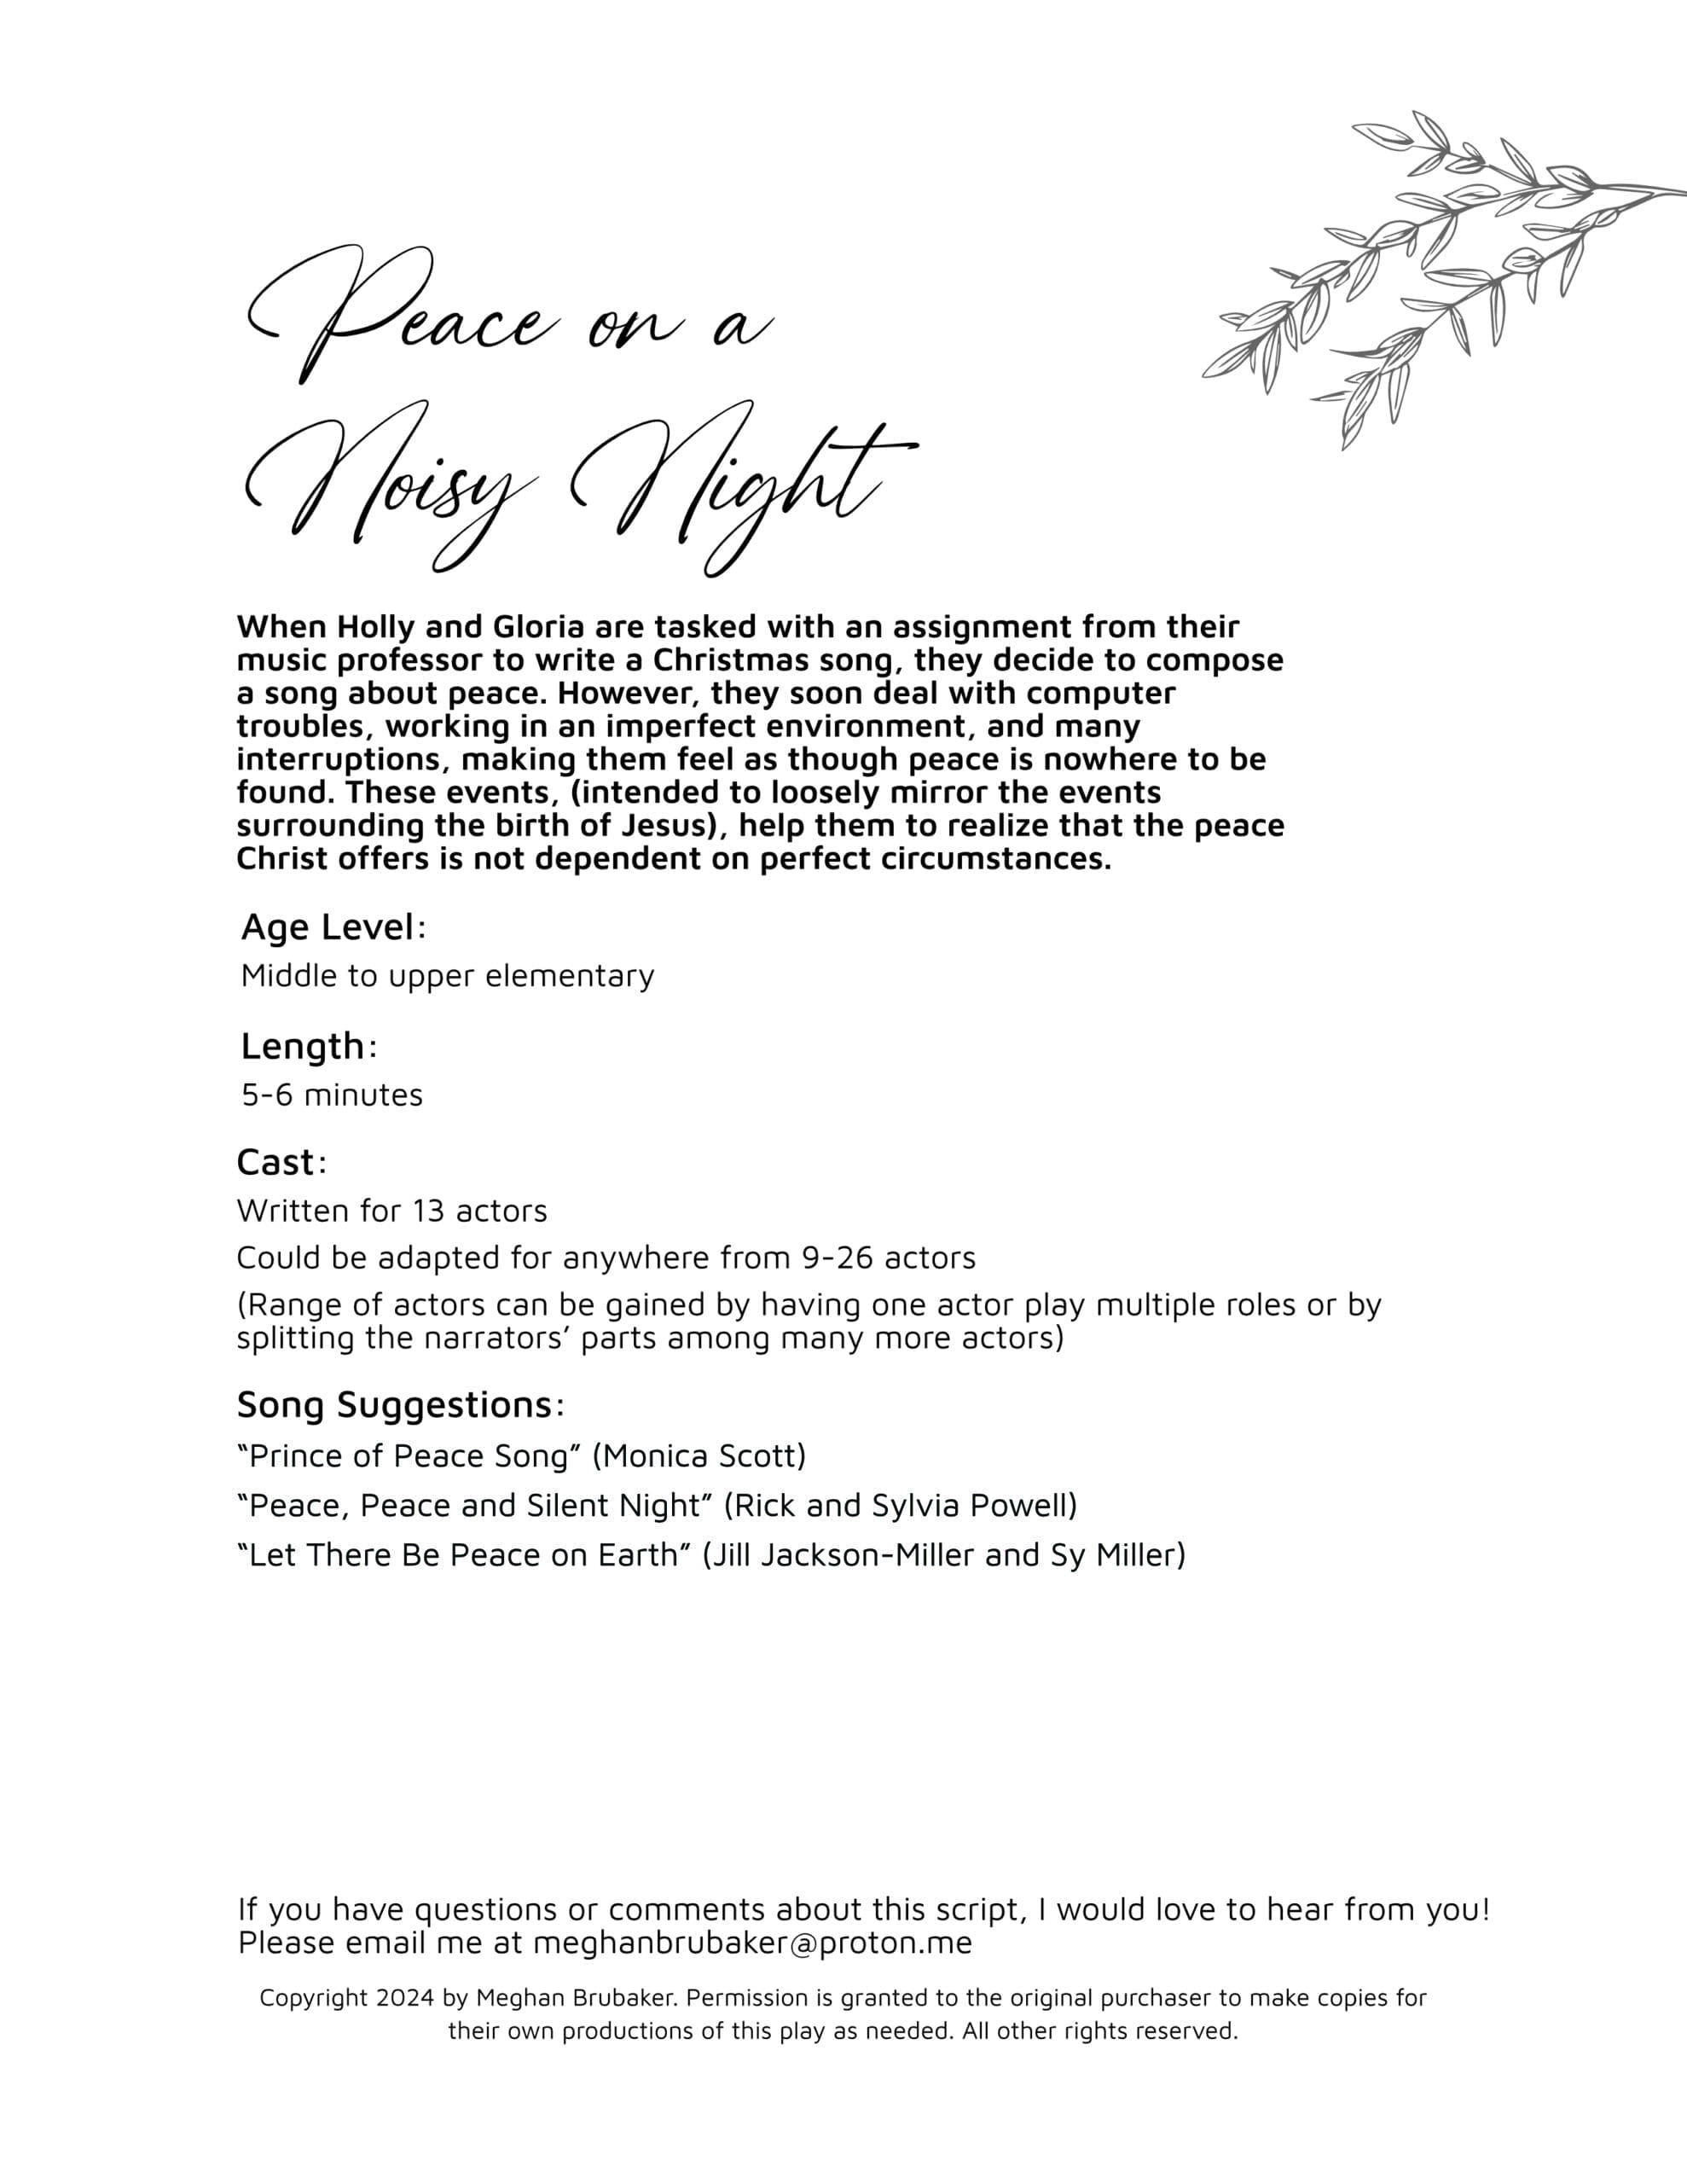 Peace on a
Noisy Night
When Holly and Gloria are tasked with an assignment from their
music professor to write a Christmas song, they decide to compose
a song about peace. However, they soon deal with computer
troubles, working in an imperfect environment, and many
interruptions, making them feel as though peace is nowhere to be
found. These events, (intended to loosely mirror the events
surrounding the birth of Jesus), help them to realize that the peace
Christ offers is not dependent on perfect circumstances.
Age Level:
Middle to upper elementary
Length:
5-6 minutes
Cast:
Written for 13 actors
Could be adapted for anywhere from 9-26 actors
(Range of actors can be gained by having one actor play multiple roles or by
splitting the narrators’ parts among many more actors)
Song Suggestions:
“Prince of Peace Song” (Monica Scott)
“Peace, Peace and Silent Night” (Rick and Sylvia Powell)
“Let There Be Peace on Earth” (Jill Jackson-Miller and Sy Miller)
If you have questions or comments about this script, I would love to hear from you!
Please email me at meghanbrubaker@proton.me
Copyright 2024 by Meghan Brubaker. Permission is granted to the original purchaser to make copies for
their own productions of this play as needed. All other rights reserved.